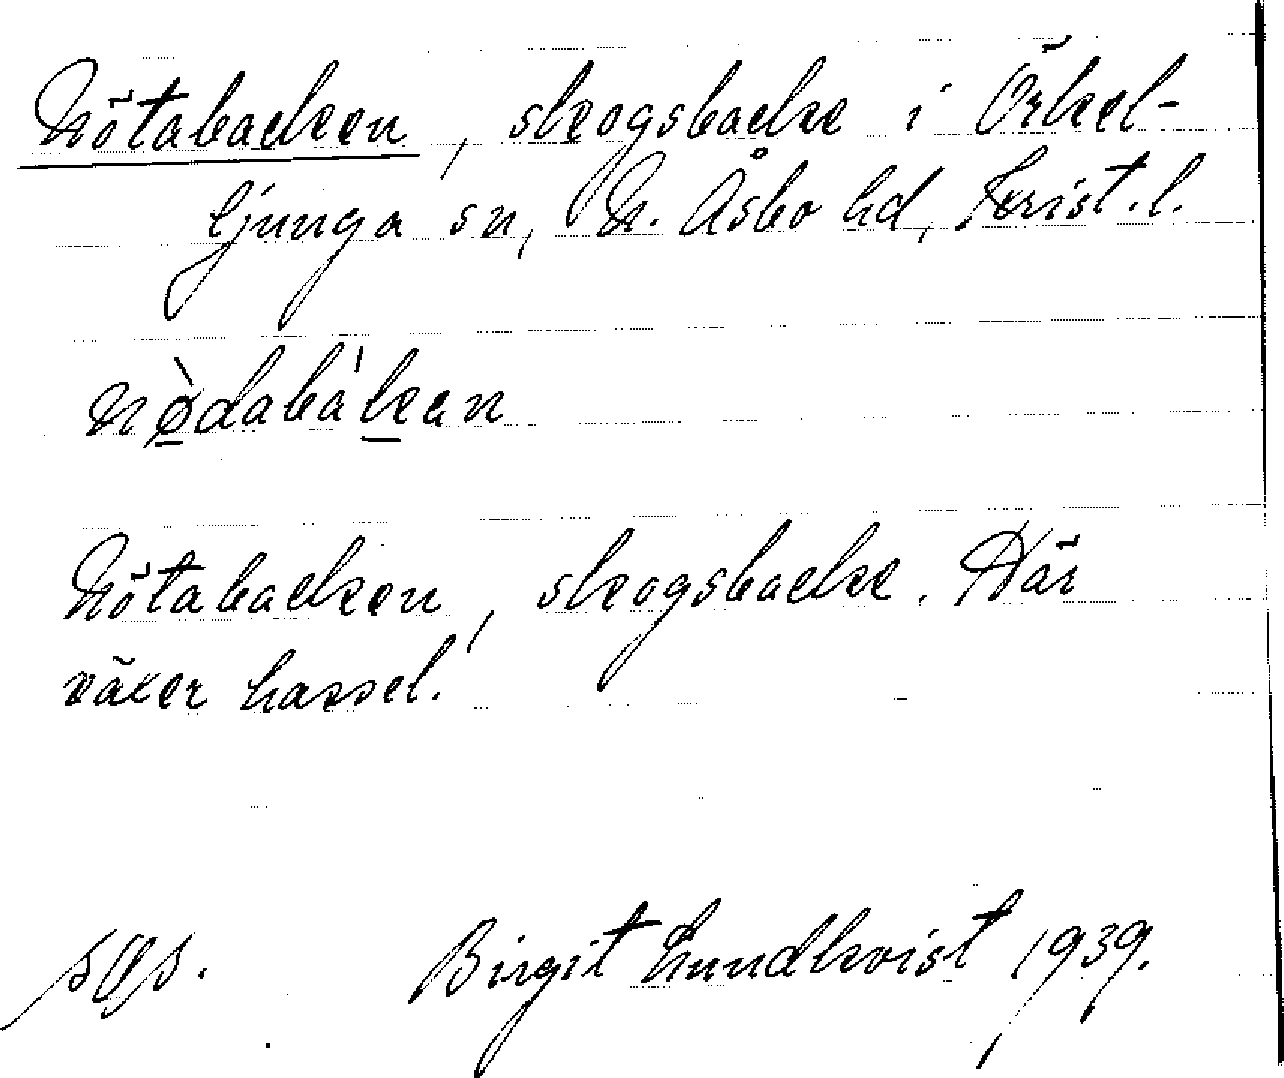 Nötabacken, skogsbacke i Örkel-
ljunga sn, N. Åsbo hd, Krist. l.
nø̀dabàkan
Nötabacken, skogsbacke. Där
växer hassel.
Birgit Lundkvist 1939.